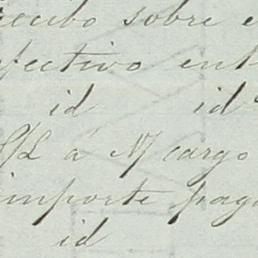 recibo sobre e
efectivo ent
id id
S/L á M/ cargo
importe paga
id